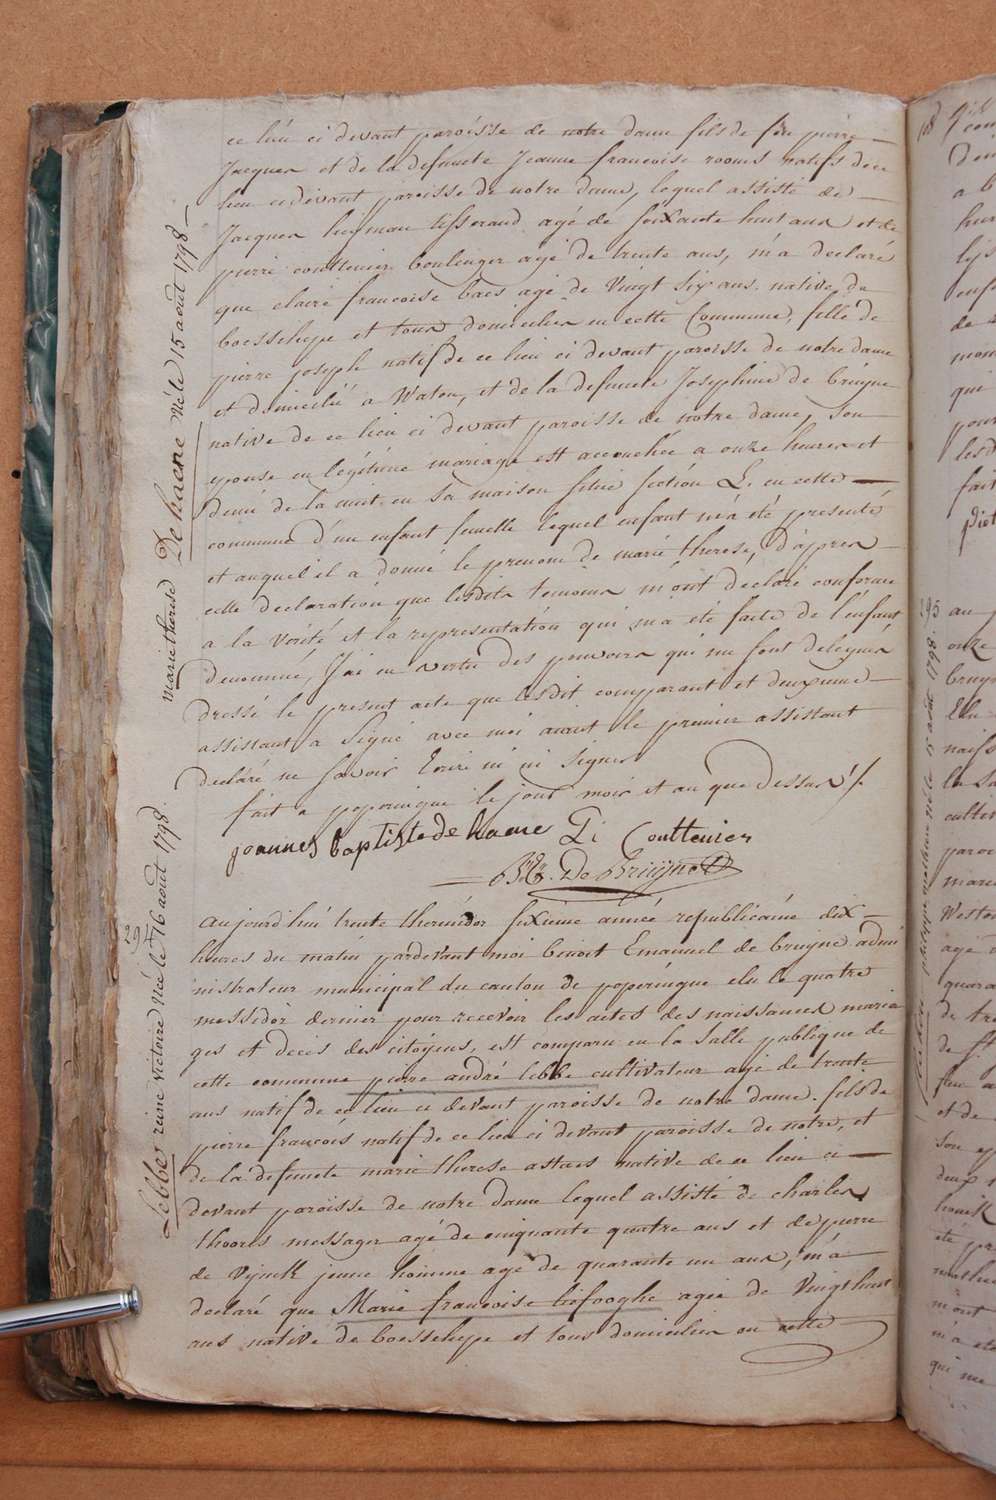 ce lieu ci devant paroisse de notre dame fils de feu pierre
Jacques et de la defuncte Jeanne francoise rooms natifs dece
lieu ci devant paroisse de notre dame, lequel assisté de
Jacques tisserand agé de soixante huit ans et de
pierre couttenier boulenger agé de trente ans, m'a declaré
que claire francoise baes agé de Vingt Six ans. native de
boesschepe et tous domiciliés en cette Commune, fille de
pierre joseph natif de ce lieu ci devant paroisse de notre dame
et domicilié a Watou, et de la defuncte Josephine de bruyne
native de ce lieu ci devant paroisse de notre dame, son
epouse en légitime mariage est accouchée a onze heures et
demi de la nuit en sa maison section L. en cette
commune d'un enfant femelle lequel enfant m'a été presenté
et auquel il a donné le prenom de marie therese, d'apres
cette declaration que lesdits temoins m'ont declaré conforme
a la vérité et la représentation qui m'a été faite de l'enfant
denommé, J'ai en vertu des pouvoirs qui me sont delegués
dressé le present acte que lesdit comparant et deuxieme
assistant a Signé avec moi aiant le premier assistant
declaré ne savoir Ecrire ni signer
fait a poperingue le jour mois et an que dessus /.
joannes baptiste de haene Pi Couttenier
De Bruijne
aujourd'hui trente thermidor sixieme année republicaine dix
heures du matin pardevant moi benoit Emanuel de bruyne admi
nistrateur municipal du canton de poperingue elu le quatre
messidor dernier pour recevoir les actes des naissances maria
ges et deces des citoyens, est comparu en la salle publique de
cette commune pierre andré lebbe cultivateur agé de trente
ans natif de ce lieu ci devant paroisse de notre dame. fils de
pierre francois natif de ce lieu ci devant paroisse de notre, et
de la defuncte marie therese astaes native de ce lieu ci
devant paroisse de notre dame lequel assisté de charles
thoores messager agé de cinquante quatre ans et de pierre
de Vynck jeune homme agé de quarante un ans, m'a
declaré que Marie francoise liefooghe agée de Vingthuit
ans native de boesschepe et tous domicilies en cette
marie therese De haene Née le 15 août 1798
Lebbe reine victoire Née le 16 août 1798